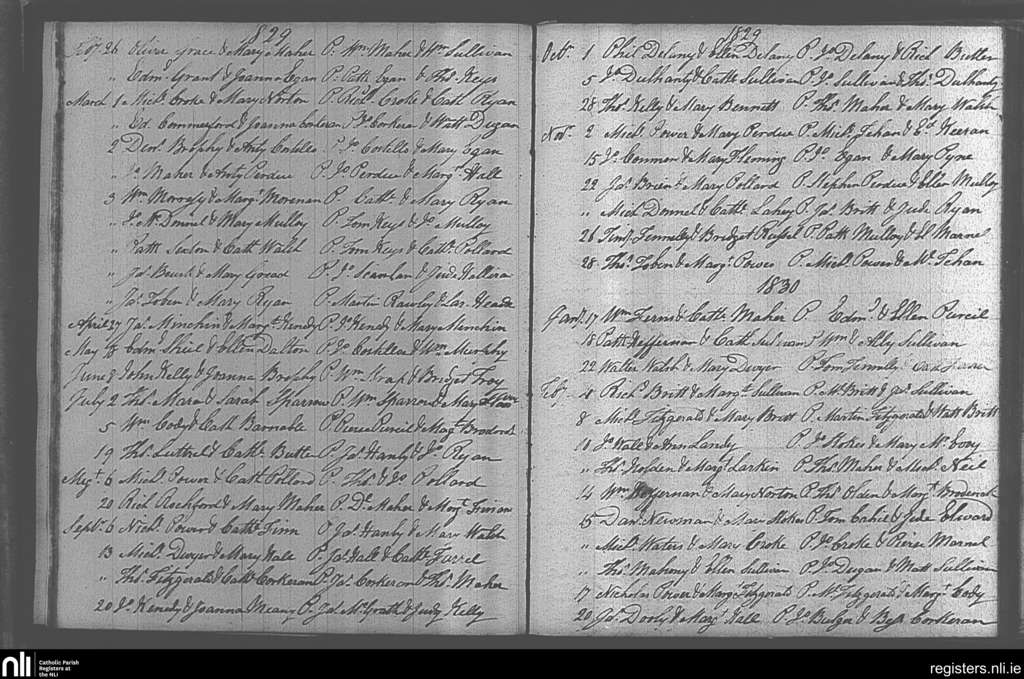 1829
Feby 26 Oliver Grace & Mary Maher P. Wm Maher & Wm Sullivan
" Edmd Grant & Joanna Egan P. Patk Egan & Thos Keys
March 1 Michl Croke & Mary Norton P. Richd Croke & Cath Ryan
" Ed. Commerford & Joanna P. Jo Corkeran & Watt Dugan
2 Denis Brophy & Anty Costello P. Jo Costello & Mary Egan
" Jo Maher & Anty Perdue P. Jo Perdue & Margt Hall
3 Wm & Margt Noonan P. & Mary Ryan
" & Mary Mulloy P. Tom Keys & Jo Mulloy
" Patk Sexton & Cath Walsh P. Tom Keys & Cath Pollard
" Jos & Mary P. Jo Scanlan & Jude
" Jas Tobin & Mary Ryan P. Martin Rawley & Lar.
April 27 Jas Minchin & Margt Kenedy P. Jo Kenedy & Mary Minchin
May 18 Edmd Shiel & Ellen Dalton P. Jo Costelloe & Wm Murphy
June 8 John Kelly & Joanna Brophy P. Wm & Bridget Troy
July 2 Thos Mara & Sarah Sparrow P. Wm Sparrow & Mary
5 Wm Cody & Cath Barnable P. Pierce Purcil & Margt Broderick
19 Thos Luttrel & Cath Butler P. Jas Hanly & Jo Ryan
Augt 6 Michl Power & Cath Pollard P. Thos & Jo Pollard
20 Rich Rochford & Mary Maher P. Dl Maher & Margt
Septr 6 Nichl & Cath Finn P. Jas Hanly & Mary Walsh
13 Michl Dwyer & Mary Hale P. Jas Hale & Cath Farrel
" Thos Fitzgerald & Cath Corkeran P. Jas Corkeran & Thos Maher
20 Jo Kenedy & Joanna Meany P. Jas McGrath & Judy Kelly
1829
Octr 1 Phil Delany & Ellen Delany P. Jo Delany & Rich Butler
5 Jo Dulhanty & Cath Sullivan P. Jo Sullivan & Thos Dulhanty
28 Thos Kelly & Mary Bennett P. Thos Maher & Mary Walsh
Novr 2 Michl Power & Mary Perdue P. Michl Tehan & Ed Keeran
15 Jo Commons & Mary Fleming P. Jo Egan & Mary Pyne
22 Jas Brien & Mary Pollard P. Stephen Perdue & Ellen Mulloy
" Michl Donnel & Cath Lahey P. Jas Britt & Jude Ryan
26 Timy Fennelly & Bridget Russel P. Patk Mulloy & Marnel
28 Thos Tobin & Margt Power P. Michl Power & Tehan
1830
Jany 17 Wm Ferns & Cath Maher P. Edmd & Ellen Purcil
18 Patk Heffernan & Cath Sullivan P. Wm & Abby Sullivan
22 Walter Walsh & Mary Dwyer P. Tom Fennelly
Feby 4 Richd Britt & Margt Sullivan P. Britt & Jas Sullivan
8 Michl Fitzgerald & Mary Britt P. Martin Fitzgerald & Watt Britt
10 Jo Hall & Ann Landy P. Jo Stokes & Mary
" Thos Holden & Margt Larkin P. Thos Maher & Michl Neil
14 Wm Heffernan & Mary Norton P. Thos & Margt Broderick
15 Danl Newman & Mary Stokes P. Tom Cahil & Jude Edward
" Michl Waters & Mary Croke P. Jo Croke & Pierse Marnel
" Thos Mahony & Ellen Sullivan P. Jo Dugan & Matt Sullivan
17 Nicholas Power & Margt Fitzgerald P. Ml Fitzgerald & Margt Cody
20 Jas Dooly & Margt Hall P. Jo & Bess Corkeran
nli Catholic Parish
Registers at
the NLI
registers.nli.ie